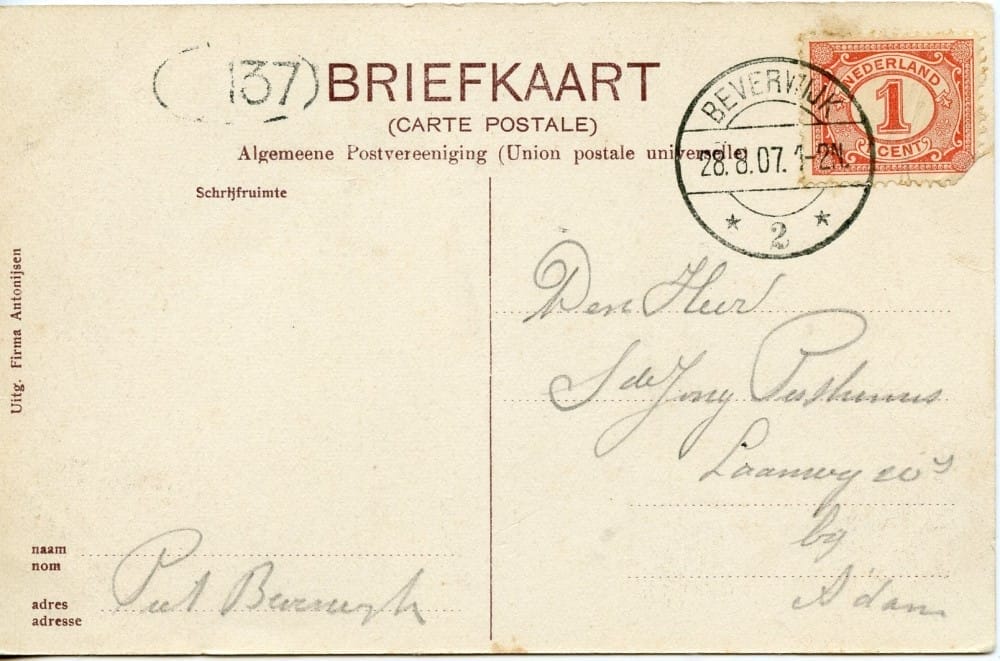 (137)
BRIEFKAART
(CARTE POSTALE)
Algemeene Postvereeniging (Union postale universelle)
NEDERLAND
1
CENT
BEVERWIJK
28.8.07. 1-2N.
2
Schrijfruimte
Uitg. Firma Antonijsen
Den Heer
S de Jong Posthumus
bij
A'dam
naam
nom
adres
adresse
Piet